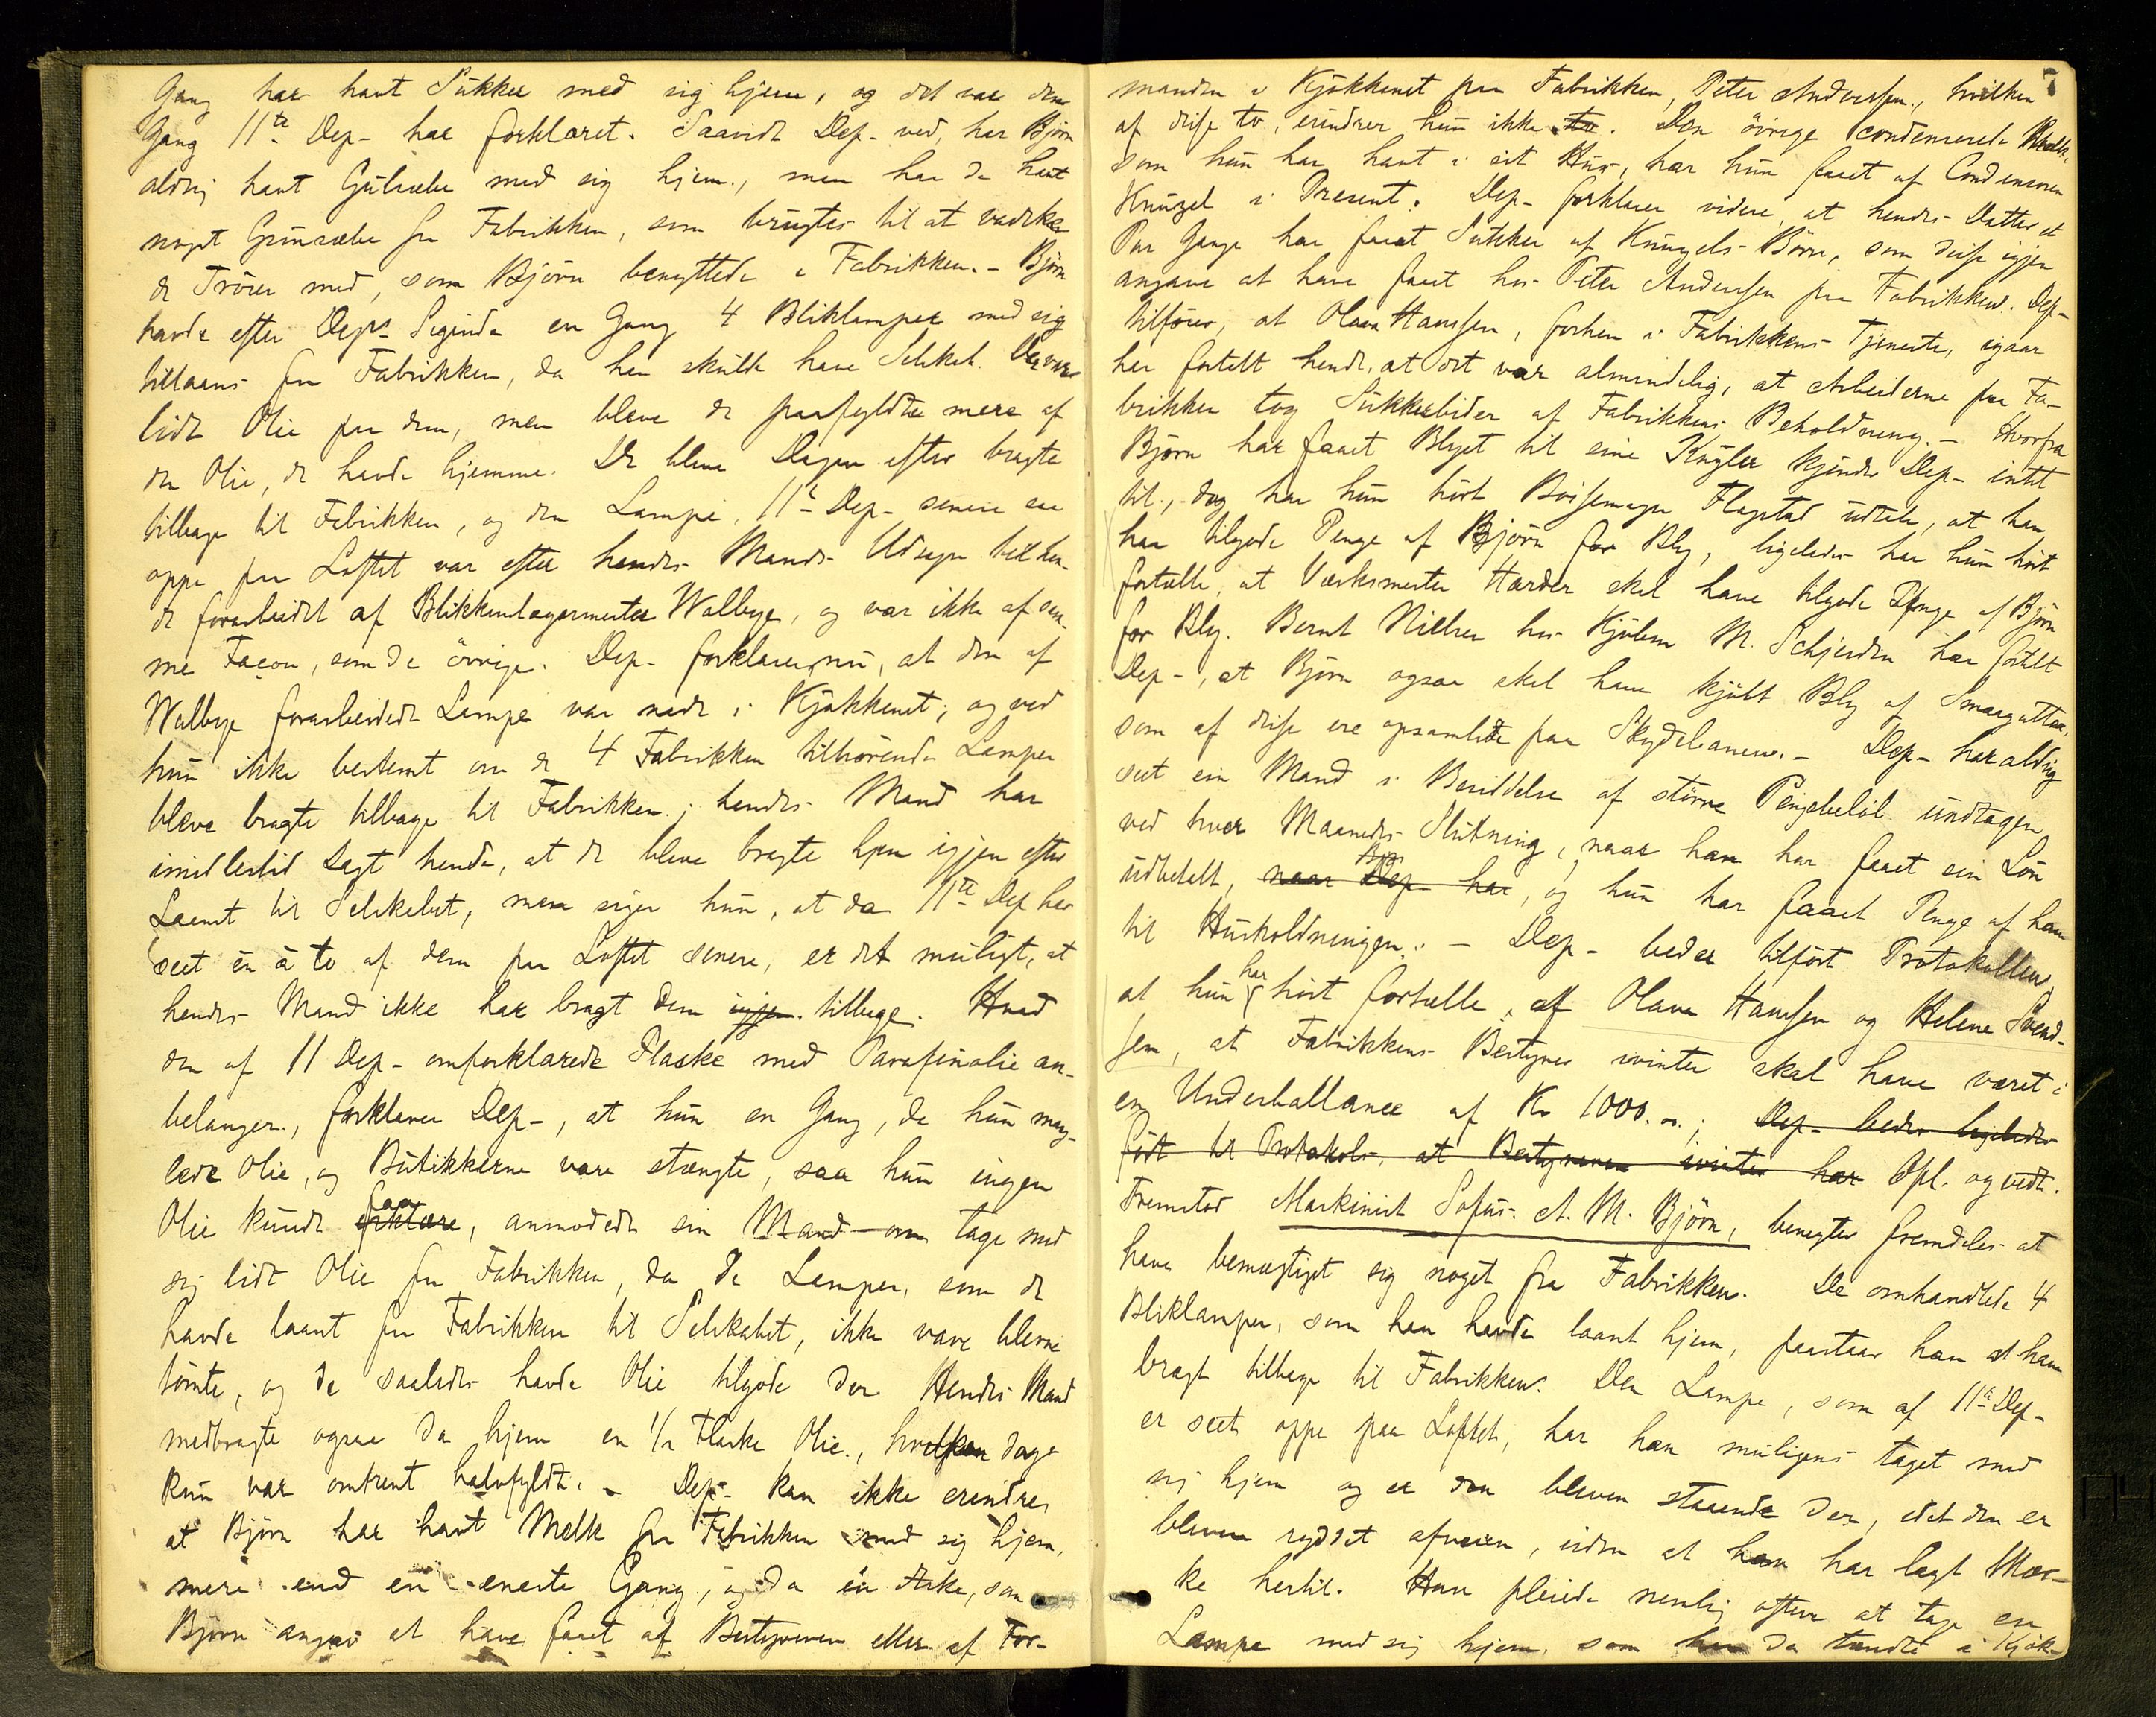 Gang har havt Sukker med sig hjem, og det var den
Gang 11te Dep- har forklaret. Saavidt Dep- ved, har Bjørn
aldrig havt Gulsæbe med sig hjem, men har de havt
noget Grønsæbe fra Fabrikken, som brugtes til at vadske
de Trøier med, som Bjørn benyttede i Fabrikken. - Bjørn
havde efter Deps- Sigende en Gang 4 Bliklamper med sig
tillaans fra Fabrikken, da han skulde have Selskab. Der var
lidt Olie paa dem, men bleve de paafyldte mere af
den Olie, de havde hjemme. De bleve Dagen efter bragte
tilbage til Fabrikken, og den Lampe, 11te Dep- senere saa
oppe paa Loftet var efter hendes Mands Udsagn til hen-
de forarbeidet af Blikkenslagermester Walbye, og var ikke af sam-
me Façon, som de øvrige. Dep- forklarer nu, at den af
Walbye forarbeidede Lampe var nede i Kjøkkenet; og ved
hun ikke bestemt om de 4 Fabrikken tilhørende Lamper
bleve bragte tilbage til Fabrikken; hendes Mand har
imidlertid sagt hende, at de bleve bragte hjem igjen efter
Laant til Selskabet, men siger hun, at da 11te Dep har
seet en à to af dem paa Loftet senere, er det muligt, at
hendes Mand ikke har bragt dem igjen tilbage. Hvad
den af 11 Dep- omforklarede Flaske med Parafinolie an-
belanger, forklarer Dep-, at hun en Gang, da hun mang-
lede Olie, og Butikkerne vare stængte, saa hun ingen
Olie kunde faa, anmodede sin Mand om tage med
sig lidt Olie fra Fabrikken, da de Lamper, som de
havde laant fra Fabrikken til Selskabet, ikke vare blevne
tømte, og de saaledes havde Olie tilgode der. Hendes Mand
medbragte ogsaa da hjem en 1/1 Flaske Olie, hvilken dog
kun var omtrent halvfyldt. - Dep- kan ikke erindre,
at Bjørn har havt Melk fra Fabrikken med sig hjem,
mere end en eneste Gang, og da en Æske, som
Bjørn angav at have faaet af Bestyreren eller af For-
7
manden i Kjøkkenet paa Fabrikken, Peter Anderssen, hvilken
af disse to, erindrer hun ikke to. Den øvrige condenserede Melk
som hun har havt i sit Hus, har hun faaet af Condensoren
Knuzel i Present. Dep- forklarer videre, at hendes Datter et
Par Gange har faaet Sukker af Knuzels Børn, som disse igjen
angave at have faaet hos Peter Anderssen paa Fabrikken. Dep-
tilføier, at Olava Hanssen, forhen i Fabrikkens Tjeneste, igaar
har fortalt hende, at det var almindelig, at Arbeiderne paa Fa-
brikken tog Sukkerbider af Fabrikkens Beholdning. - Hvorfra
Bjørn har faaet Blyet til sine Kugler kjender Dep- intet
til, dog har hun hørt Bøssemager Flagstad udtale, at han
har tilgode Penge af Bjørn for Bly, ligeledes har hun hørt
fortælle, at Værksmester Harder skal have tilgode Penge af Bjørn
for Bly. Bernt Nielsen hos Kjøbm M. Schjerden har fortalt
Dep-, at Bjørn ogsaa skal have kjøbt Bly af Smaagutter,
som af disse ere opsamlede paa Skydebanen. - Dep- har aldrig
seet sin Mand i Besiddelse af større Pengebeløb undtagen
ved hver Maaneds Slutning, naar han har faaet sin Løn
udbetalt, naar Dep- har, og hun har faaet Penge af ham
til Husholdningen. - Dep- beder tilført Protokollen,
at hun har hørt fortælle, af Olava Hanssen og Helene Svend-
sen, at Fabrikkens Bestyrer ivinter skal have været i
en Underballance af Kr 1000.00; Dep- beder ligeledes
ført til Protokols, at Bestyreren ivinter har Opl. og vedt.
Fremstod Maskinist Sofus A. M. Bjørn, benegter fremdeles at
have bemægtiget sig noget fra Fabrikken. De omhandlede 4
Bliklamper, som han havde laant hjem, paastaar han at have
bragt tilbage til Fabrikken. Den Lampe, som af 11te Dep-
er seet oppe paa Loftet, har han muligens taget med
sig hjem og er den bleven staaende der, idet den er
bleven ryddet afveien, uden at han har lagt Mær-
ke hertil. Han pleiede nemlig oftere at tage en
Lampe med sig hjem, som han da tændte i Kjøk-